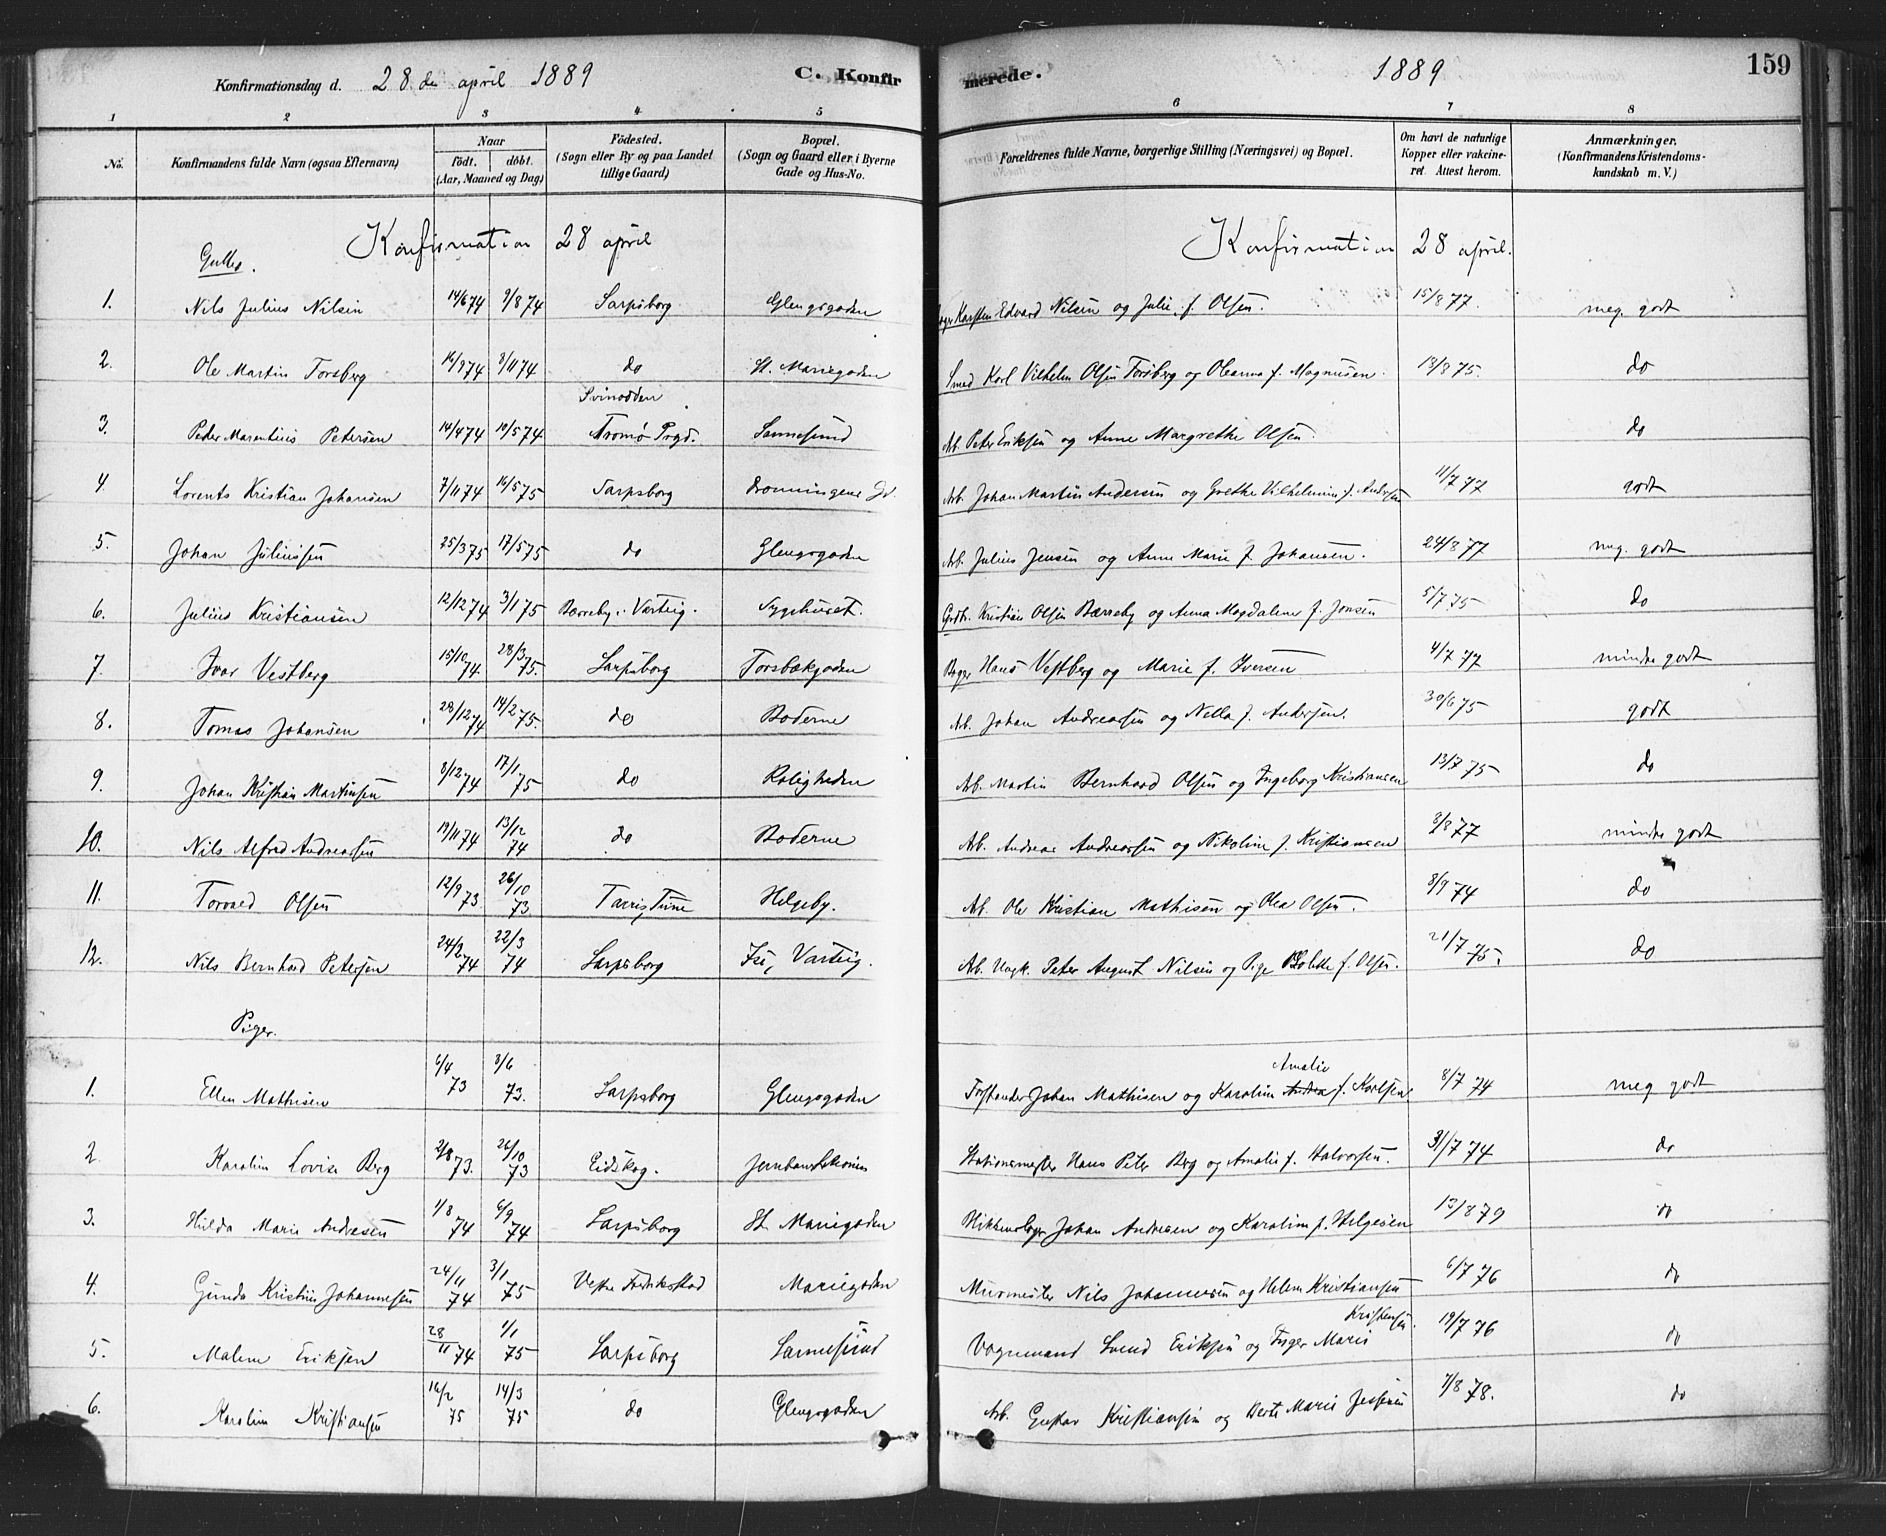 Konfirmationsdag d. 28 de april 1889 C. Konfirmerede. 1889 159
1 2 3 4 5 6 7 8
No. Konfirmandens fulde Navn (ogsaa Efternavn) Naar födt. döbt. (Aar, Maaned og Dag) Födested. (Sogn eller By og paa Landet tillige Gaard) Bopæl. (Sogn og Gaard eller i Byerne Gade og Hus-No. Forældrenes fulde Navne, borgerlige Stilling (Næringsvei) og Bopæl. Om havt de naturlige Kopper eller vakcineret. Attest herom. Anmærkninger. (Konfirmandens Kristendomskundskab m. V.)
Konfirmation 28 april Konfirmation 28 april.
Gutter.
1. Nils Julius Nilsen 14/6 74 9/8 74 Sarpsborg Glengsgaden Karsten Edvard Nilsen og Julie f. Olsen. 15/8 77. meg. godt
2. Ole Martin Forsberg 16/9 74 8/11 74 do St. Mariegaden Smed Karl Vilhelm Olsen Forsberg og Oleanna f. Magnusen. 13/8 75. do
3. Peder Marentius Petersen 14/4 74 10/5 74 Svinodden Tromø Prgd. Sannesund Arb. Peter Eriksen og Anne Margrethe Olsen. do
4. Lorents Kristian Johansen 7/11 74 16/5 75 Sarpsborg Dronningens Gd. Arb. Johan Martin Andersen og Grethe Vilhelmine f. Andersen 11/7 77 godt
5. Johan Juliussen 25/3 75 17/5 75 do Glengsgaden Arb. Julius Jensen og Anne Marie f. Johansen. 24/8 77 meg. godt
6. Julius Kristiansen 12/12 74 3/1 75 Bærreby i Varteig. Sygehuset. Grdb. Kristian Olsen Bærreby og Anna Magdalene f. Jonsen 5/7 75 do
7. Ivar Vestberg 15/10 74 28/3 75. Sarpsborg Torsbækgaden Bager Hans Vestberg og Marie f. Iversen 4/7 77 mindre godt
8. Tomas Johansen 28/12 74 14/2 75. do Boderne Arb. Johan Andreassen og Nella f. Andersen. 30/6 75 godt
9. Johan Kristian Martinsen 8/12 74 17/1 75 do Roligheden Arb. Martin Bernhard Olsen og Ingeborg Kristiansen 13/7 75 do
10. Nils Alfred Andreassen 19/11 74 13/12 74 do Boderne Arb. Andreas Andreassen og Nikoline f. Kristiansen 8/8 77 mindre godt
11. Torvald Olsen 12/9 73 26/10 73 Tarris, Tune Helgeby. Ab. Ole Kristian Mathisen og Olea Olsen. 8/9 74 do
12. Nils Bernhard Petersen 24/2 74 22/3 74 Sarpsborg Ise, Varteig. Ab. Ungk. Peter August Nilsen og Pige f. Olsen. 21/7 75. do
Piger.
1. Ellen Mathisen 6/4 73 8/6 73. Sarpsborg Glengsgaden Forstander Johan Mathisen og Karoline Andrea Amalie f. Karlsen. 8/7 74 meg godt
2. Karoline Lovise Berg 2/8 73. 26/10 73 Eidskog. Stationsmester Hans Peter Berg og Amalie f. Halvorsen. 31/7 74 do
3. Hilda Marie Andresen 1/8 74 6/9 74 Sarpsborg St. Mariegaden Blikkenslager Johan Andresen og Karoline f. Helgesen 13/8 79 do
4. Gunda Kristine Johannesen 24/11 74 3/1 75 Vestre Fredrikstad Mariegaden Murmester Nils Johannesen og Helene Kristiansen 6/7 76 do
5. Malene Eriksen 28/11 74 1/1 75 Sarpsborg Sannesund Vognmand Svend Eriksen og Inger Marie Kristensen. 19/7 76 do
6. Karoline Kristiansen 16/2 75 14/3 75 do Glengsgaden Arb. Gustav Kristiansen og Berte Marie Jessesen 7/8 78. do